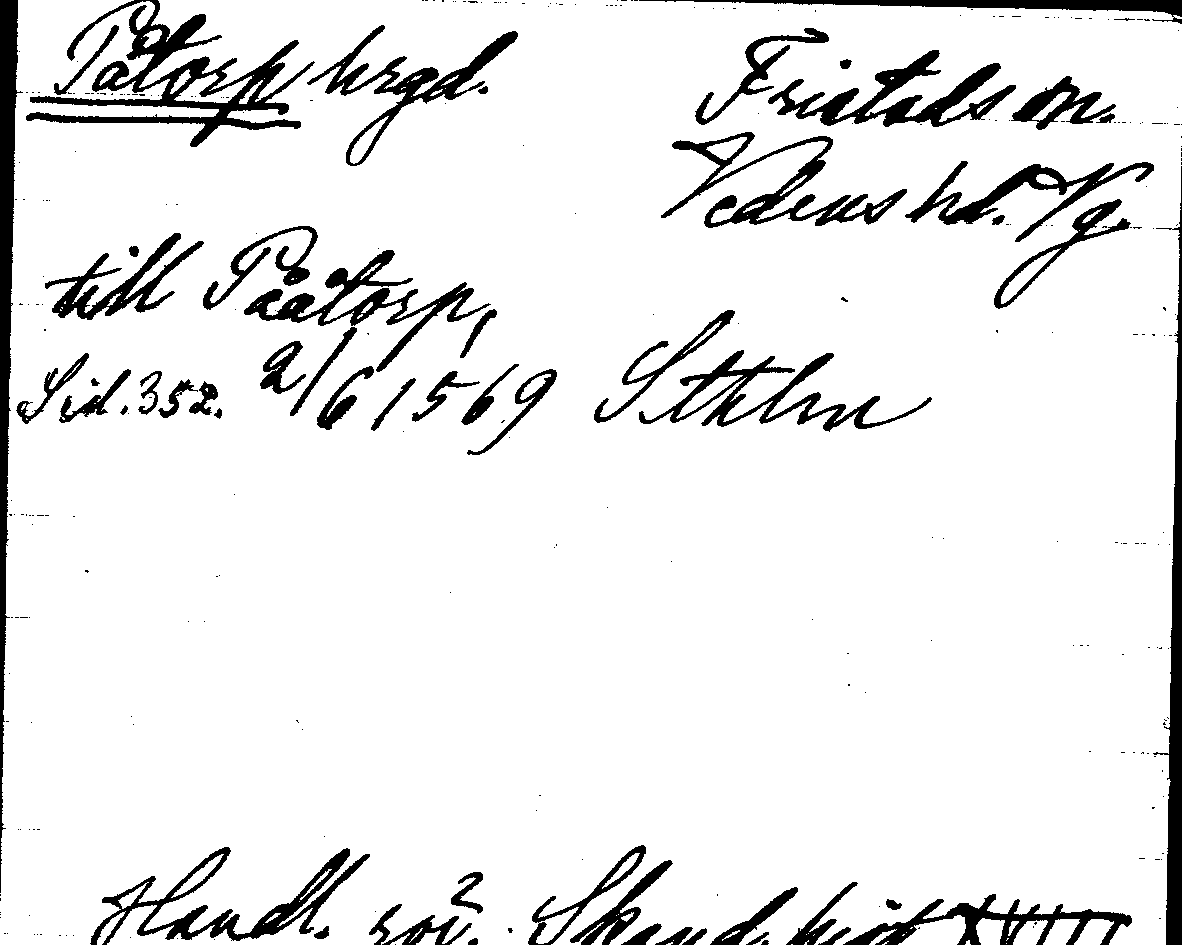 Påtorp hrgd.
Fristads sn.
Vedens hd. Vg.
till Påätorp,
Sid. 352. 2/6 1569 Sthlm
Handl. rör. Skand. hist XVIII